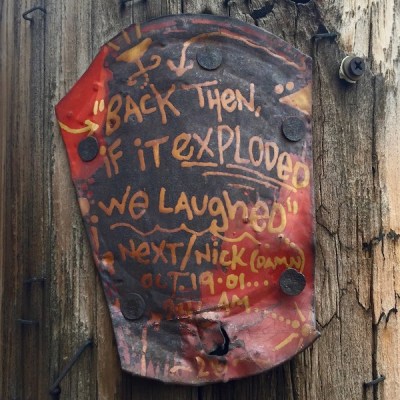 "BACK THEN,
if it EXPLODED
WE LAUGHED"
NEXT/NICK (DAMN)
OCT.19.01...
AM